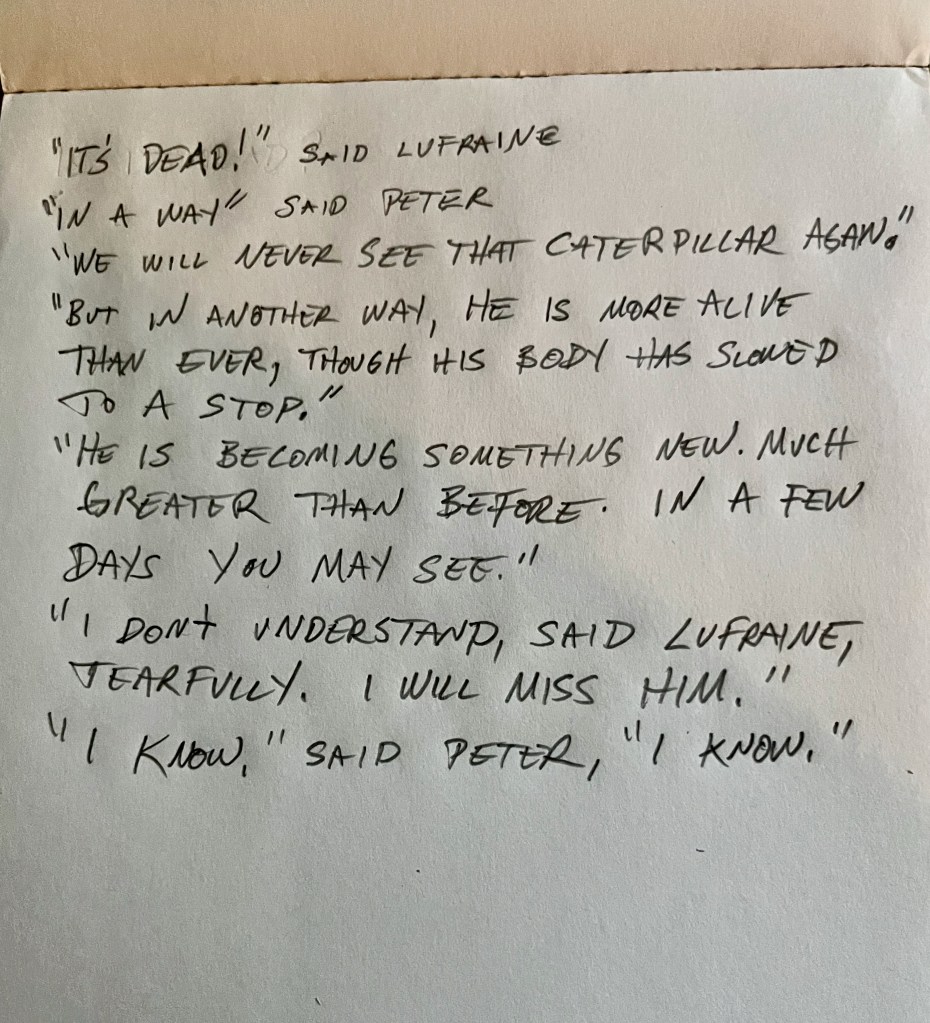 "IT'S DEAD!" SAID LUFRAINE
"IN A WAY" SAID PETER
"WE WILL NEVER SEE THAT CATERPILLAR AGAIN."
"BUT IN ANOTHER WAY, HE IS MORE ALIVE
THAN EVER, THOUGH HIS BODY HAS SLOWED
TO A STOP."
"HE IS BECOMING SOMETHING NEW. MUCH
GREATER THAN BEFORE. IN A FEW
DAYS YOU MAY SEE."
"I DONT UNDERSTAND, SAID LUFRAINE,
TEARFULLY. I WILL MISS HIM."
"I KNOW," SAID PETER, "I KNOW."